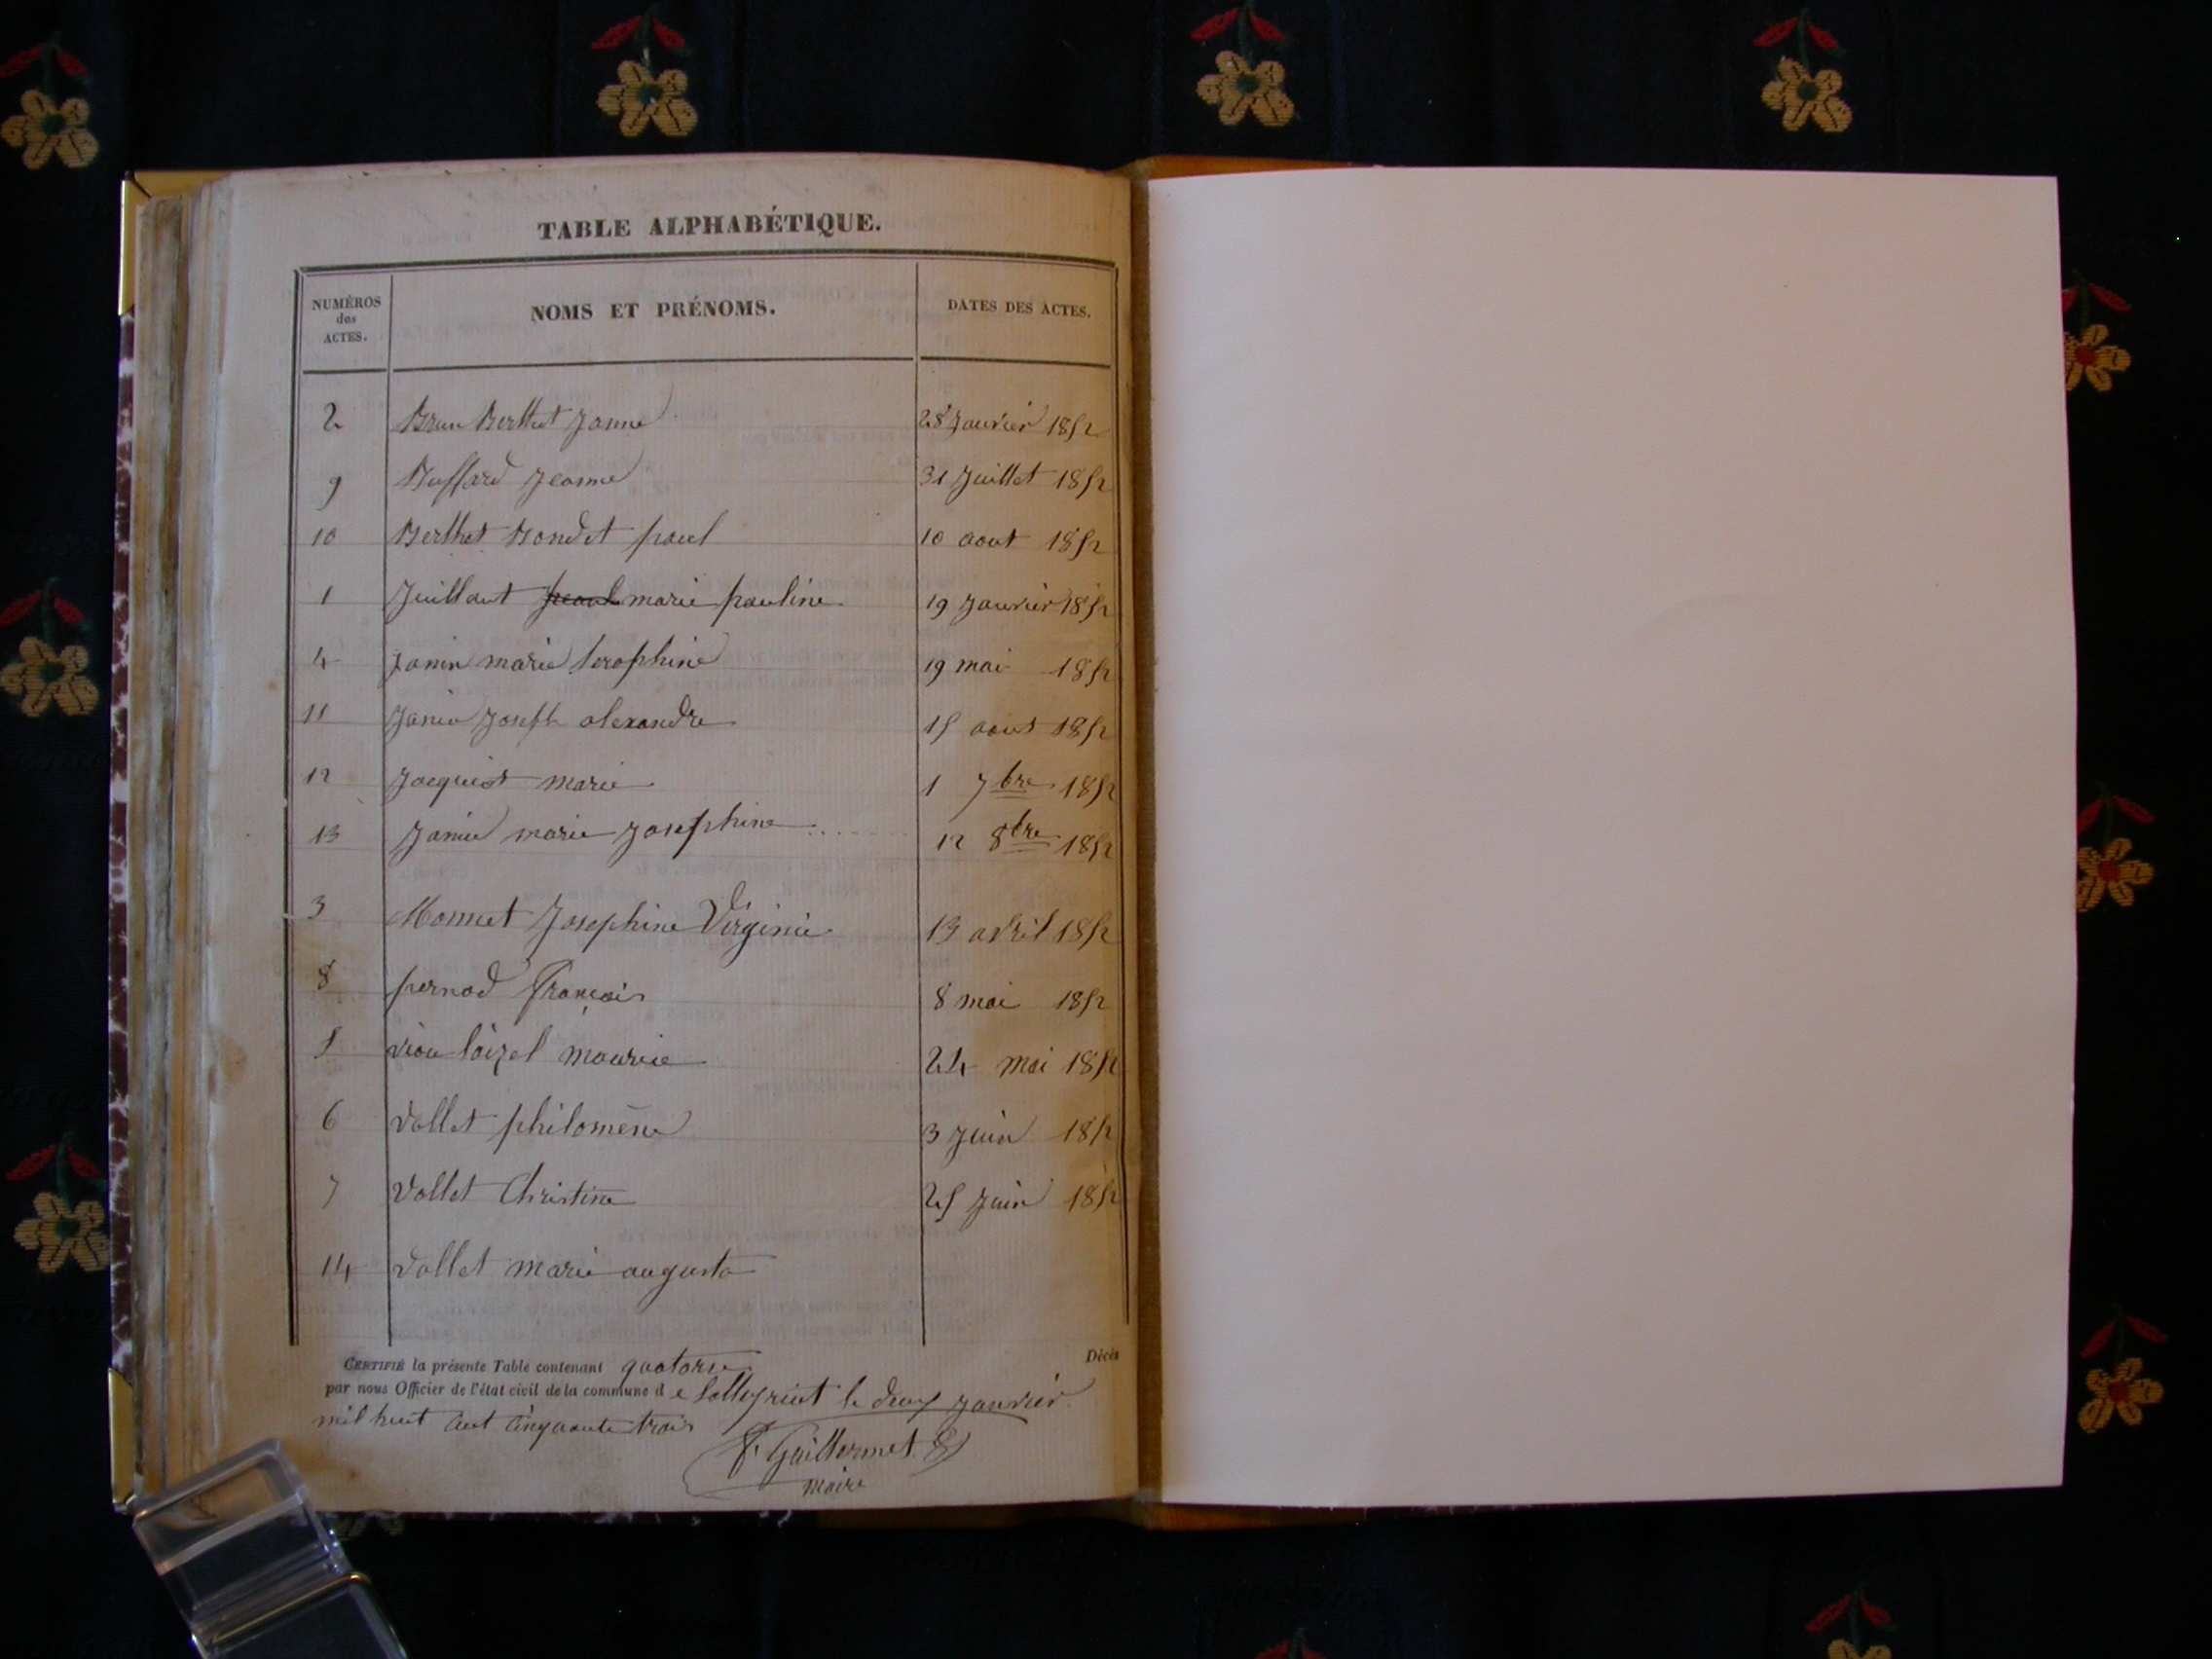 TABLE ALPHABÉTIQUE.
NUMÉROS des ACTES. NOMS ET PRÉNOMS. DATES DES ACTES.
2 Brun Berthet Janne 28 Janvier 1852
9 Buffard Jeanne 31 Juillet 1852
10 Berthet Bondet paul 10 aout 1852
1 Juillant marie pauline 19 Janvier 1852
4 Janin marie Seraphine 19 mai 1852
11 Janin Joseph alexandre 15 aout 1852
12 Jacquist marie 1 7bre 1852
13 Janin marie Josephine 12 8bre 1852
3 Monnet Josephine Virginie 13 avril 1852
8 pernod François 8 mai 1852
5 vion loizel maurice 24 mai 1852
6 vallet philomène 3 Juin 1852
7 vallet Christine 25 Juin 1852
14 vallet marie augusta
Décès
CERTIFIÉ la présente Table contenant quatorse
par nous Officier de l'état civil de la commune d e le deux janvier
mil huit cent cinquante trois
F. Guillermet
maire